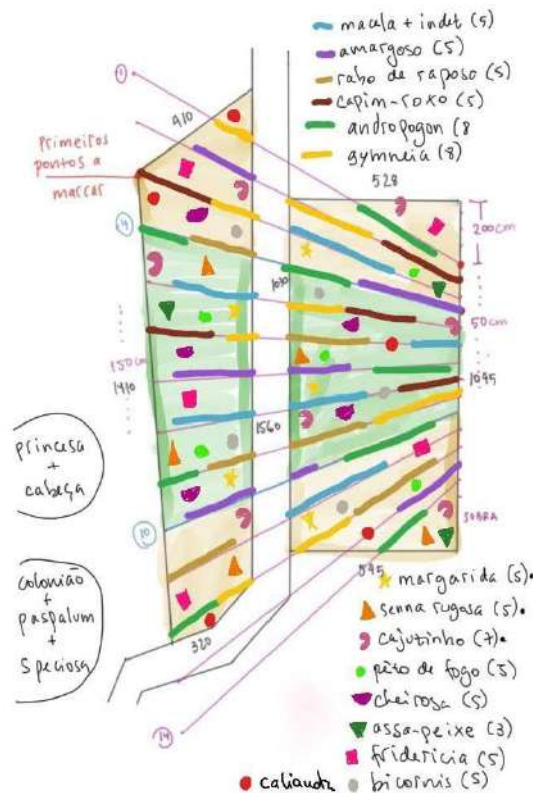 macela + indet (5)
amargoso (5)
rabo de raposo (5)
capim-roxo (5)
andropogon (8
gymneia (8)
1
910
primeiros
pontos a
marcar
528
200cm
4
1010
50cm
150cm
1410
1095
1560
princesa
+
cabeça
10
SOBRA
colonião
+
paspalum
+
speciosa
545
320
14
margarida (5)•
senna rugosa (5)•
cajuzinho (7)•
peito de fogo (5)
cheirosa (5)
assa-peixe (3)
fridericia (5)
caliandra
bicornis (5)